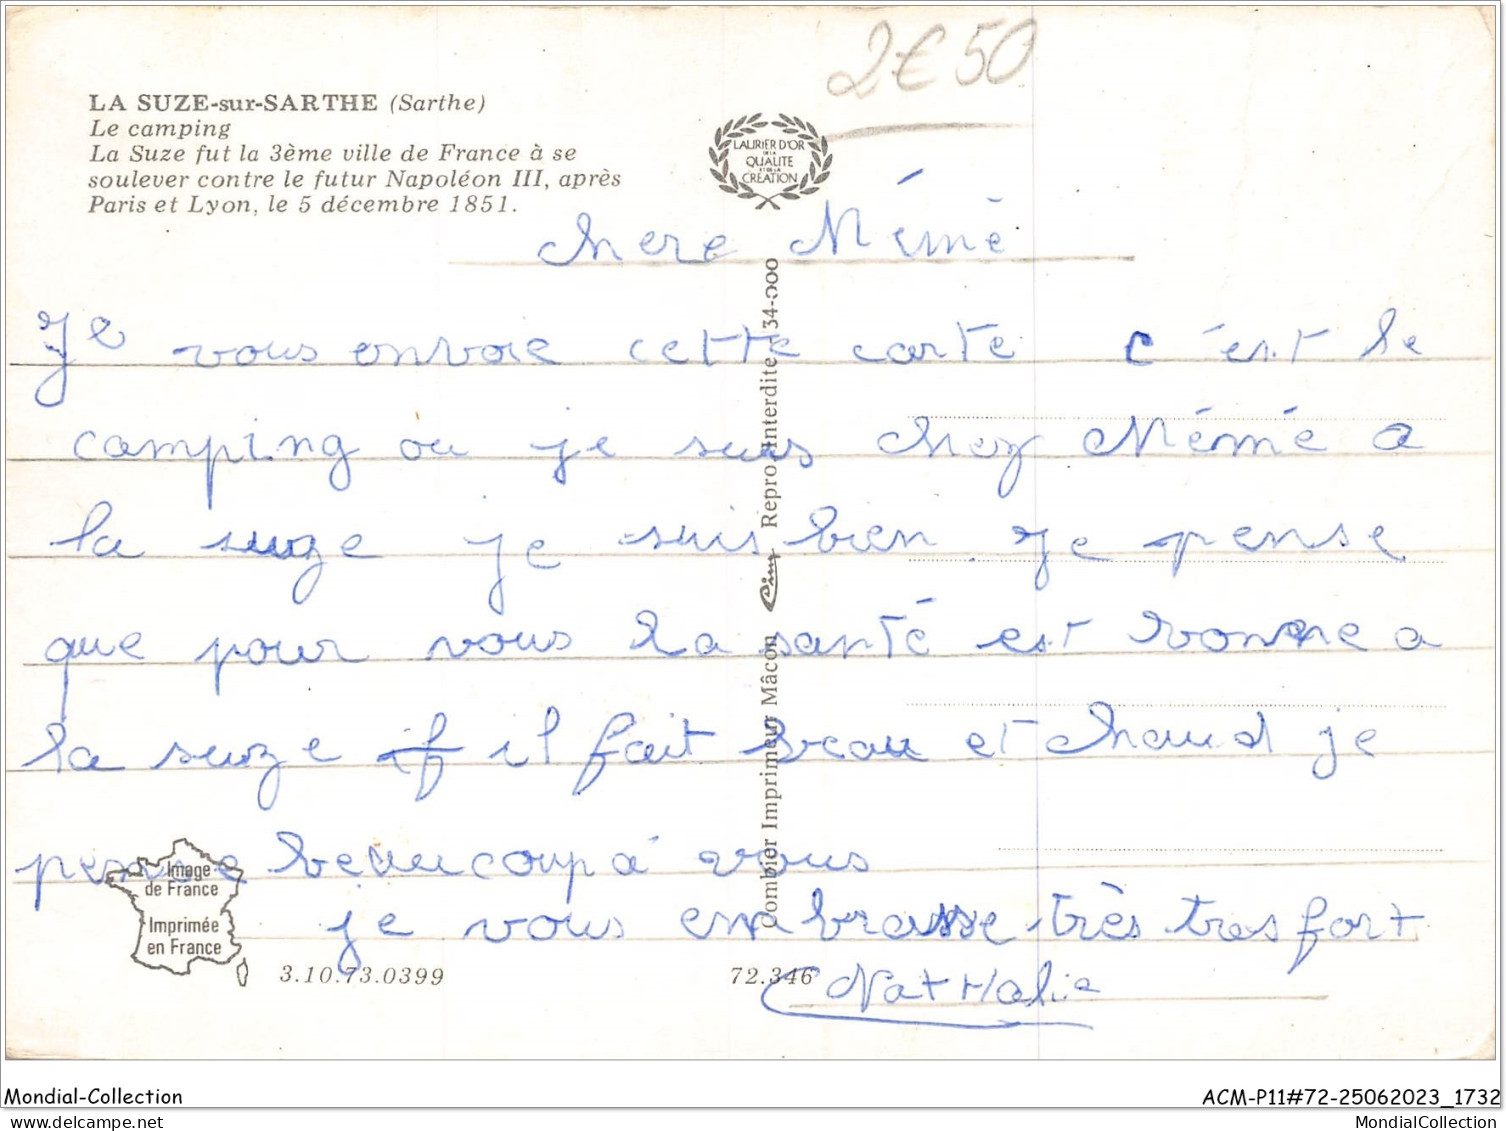 2€50
LA SUZE-sur-SARTHE (Sarthe)
Le camping
La Suze fut la 3ème ville de France à se
soulever contre le futur Napoléon III, après
Paris et Lyon, le 5 décembre 1851.
LAURIER D'OR
DE LA
QUALITE
ET DE LA
CRÉATION
chere Mémé
Je vous envoie cette carte c'est le
camping ou je suis chez Mémé a
la suze je suis bien Je pense
que pour vous la santé est bonne a
la suze if il fait beau et chaud je
pense beaucoup a vous
je vous embrasse très tres fort
Nathalie
Combier Imprimeur Mâcon Cim Repro. Interdite 34-000
Image
de France
Imprimée
en France
3.10.73.0399
72.346
Mondial-Collection
ACM-P11#72-25062023_1732
www.delcampe.net
MondialCollection